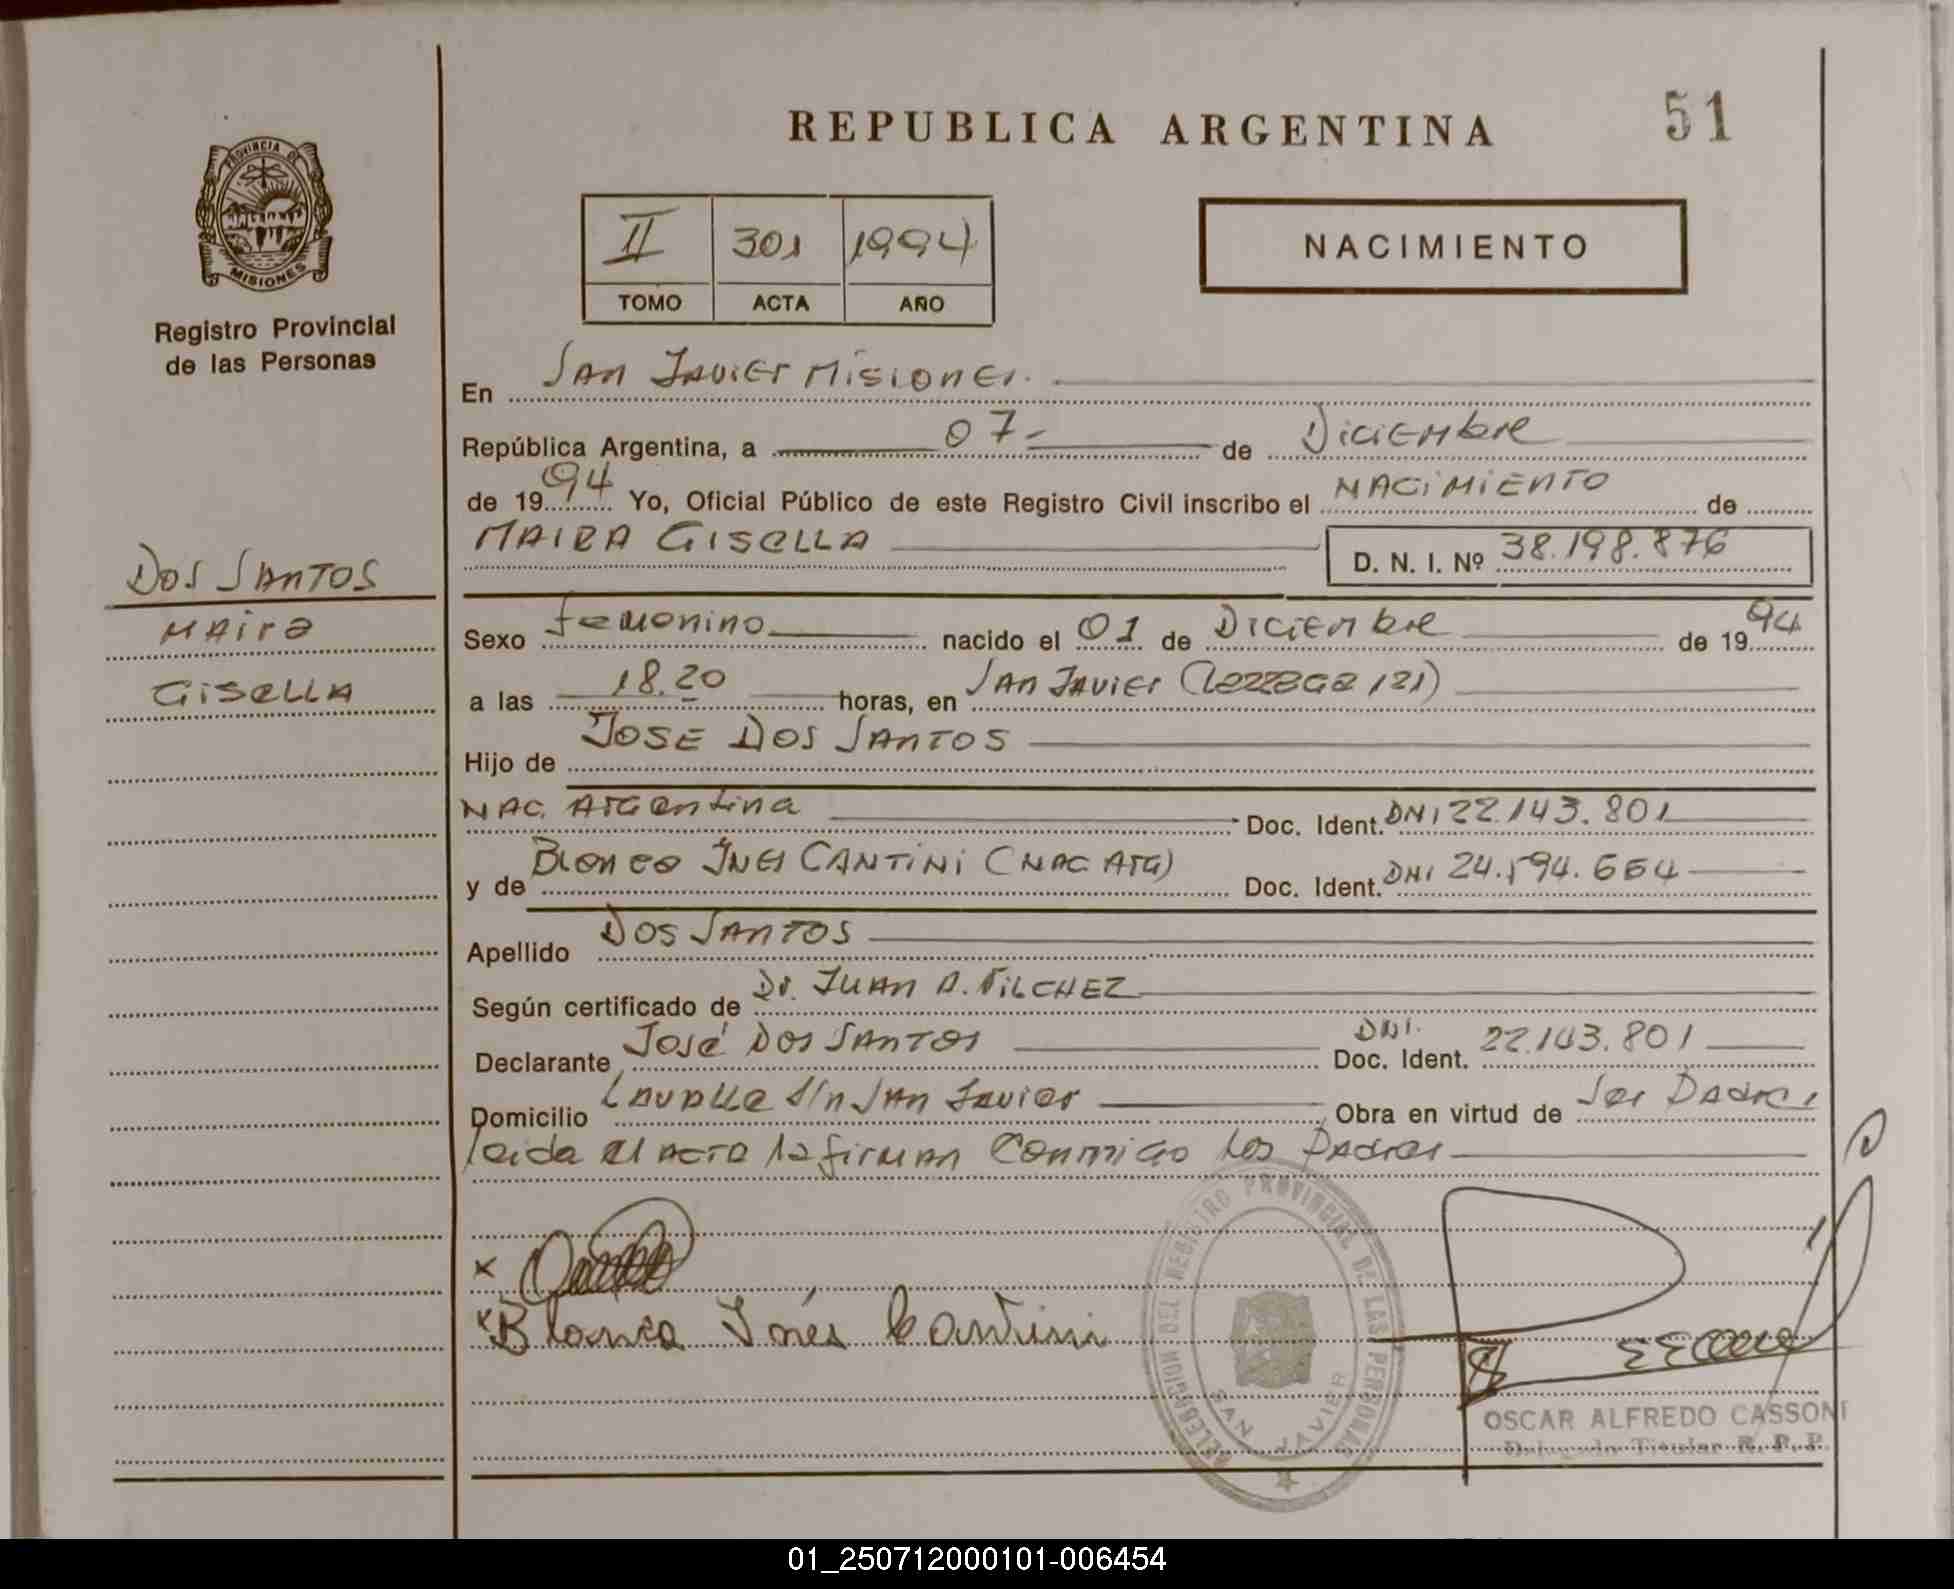 REPUBLICA ARGENTINA
51
PROVINCIA DE
MISIONES
Registro Provincial
de las Personas
II 301 1994
TOMO ACTA AÑO
NACIMIENTO
En San Javier Misiones.
República Argentina, a 07- de Diciembre
de 1994 Yo, Oficial Público de este Registro Civil inscribo el NACIMIENTO de
MAIRA GISELLA D. N. I. Nº 38.198.876
DOS SANTOS
MAIRA
GISELLA
Sexo femenino nacido el 01 de Diciembre de 1994
a las 18.20 horas, en San Javier ( 121)
Hijo de JOSE DOS SANTOS
NAC. Argentina Doc. Ident. DNI 22.143.801
y de Blanca Ines CANTINI (NAC ARG) Doc. Ident. DNI 24.594.664
Apellido DOS SANTOS
Según certificado de Dr. JUAN A. VILCHEZ
Declarante José DOS SANTOS Doc. Ident. DNI. 22.143.801
Domicilio Lavalle S/n San Javier Obra en virtud de Ser Padres
leida el acta la firman Conmigo los Padres
x
x Blanca Inés Cantini
DELEGACION DEL REGISTRO PROVINCIAL DE LAS PERSONAS
SAN JAVIER
OSCAR ALFREDO CASSONI
Delegado Titular R. P. P.
01_250712000101-006454